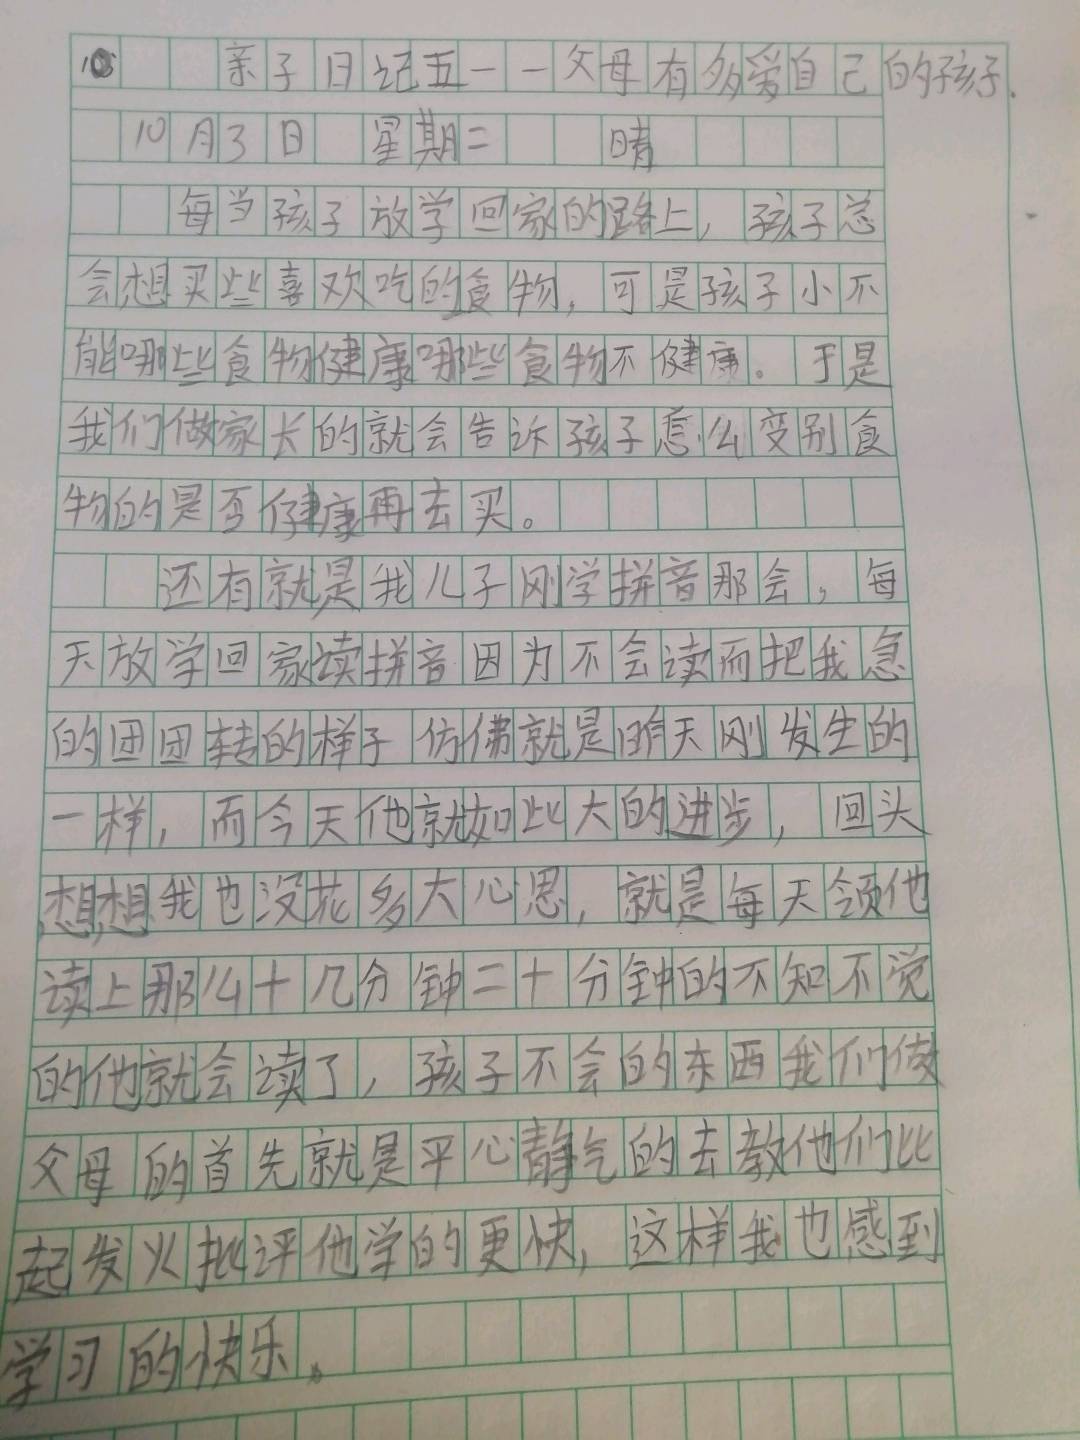 10 亲子日记五——父母有多爱自己的孩子.
10月3日 星期二 晴
每当孩子放学回家的路上，孩子总
会想买些喜欢吃的食物，可是孩子小不
能哪些食物健康哪些食物不健康。于是
我们做家长的就会告诉孩子怎么变别食
物的是否健康再去买。
还有就是我儿子刚学拼音那会，每
天放学回家读拼音因为不会读而把我急
的团团转的样子仿佛就是昨天刚发生的
一样，而今天他就如此大的进步，回头
想想我也没花多大心思，就是每天领他
读上那么十几分钟二十分钟的不知不觉
的他就会读了，孩子不会的东西我们做
父母的首先就是平心静气的去教他们比
起发火批评他学的更快，这样我也感到
学习的快乐。